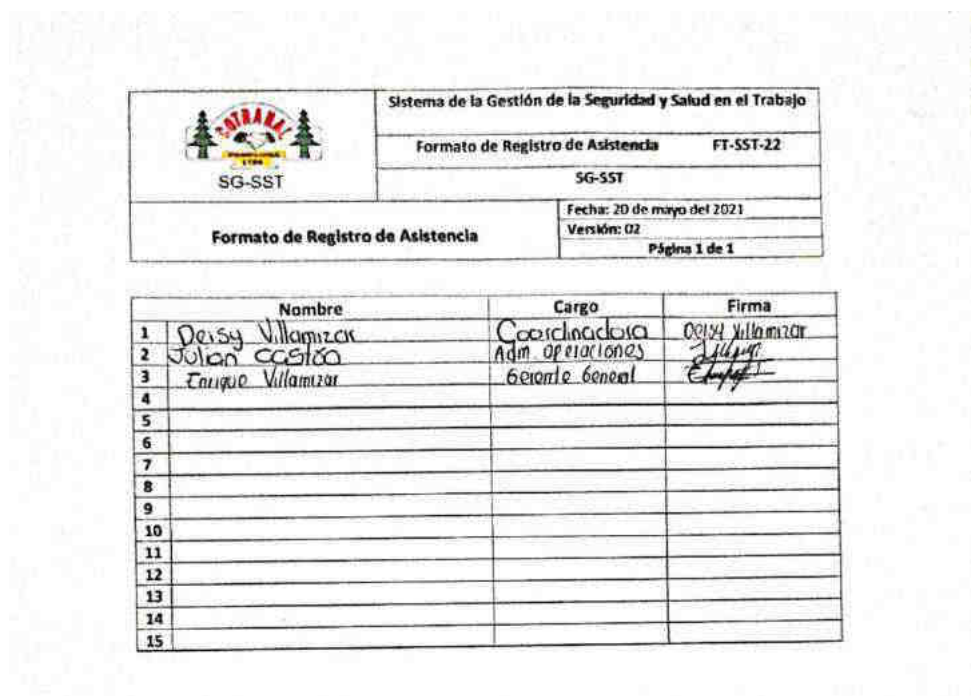 COTRANAL
PAMPLONA
LTDA
SG-SST
Sistema de la Gestión de la Seguridad y Salud en el Trabajo
Formato de Registro de Asistencia FT-SST-22
SG-SST
Formato de Registro de Asistencia
Fecha: 20 de mayo del 2021
Versión: 02
Página 1 de 1
Nombre Cargo Firma
1 Deisy Villamizar Coordinadora Deisy Villamizar
2 Julian Castro Adm. operaciones
3 Enrique Villamizar Gerente General
4
5
6
7
8
9
10
11
12
13
14
15